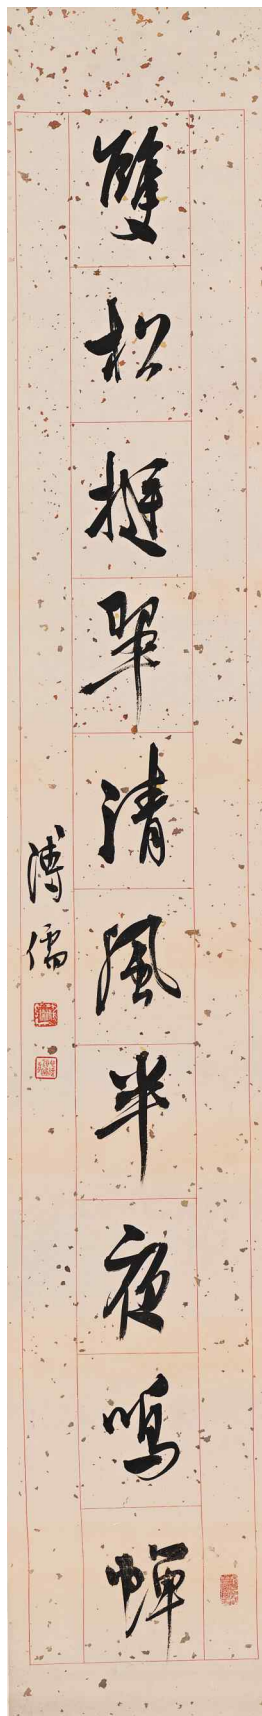 雙松挺翠清風半夜鳴蟬
溥儒